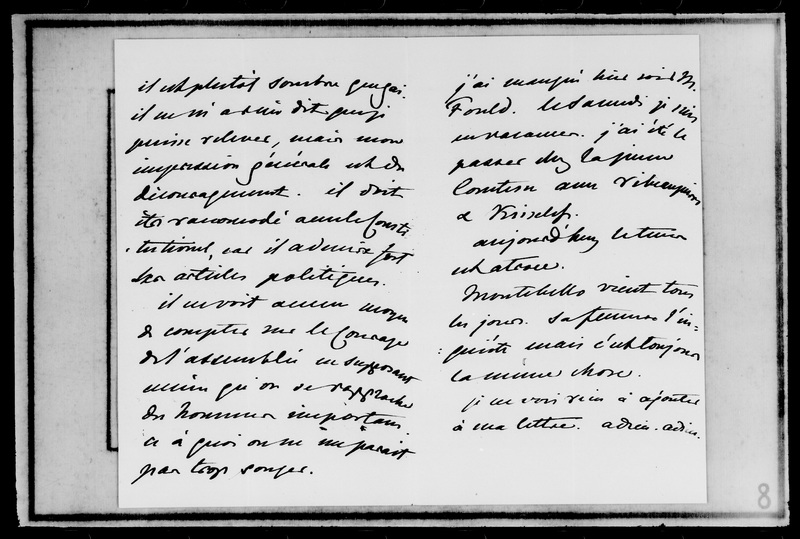 il est plutôt sombre que gai.
il ne m'a rien dit que je
puisse relever, mais mon
impression générale est du
découragement. il doit
être raccomodé avec le Consti
-tutionel, car il admire fort
ses articles politiques.
il ne voit aucun moyen
de compter sur le Courage
de l'assemblée en supposant
même qu'on se rapproche
des hommes importans,
ce à quoi on ne me parait
pas trop songer.
j'ai mangé hier soir M.
Fould. le Samedi je suis
en vacances. j'ai été le
passer chez la jeune
Comtesse avec
& Kisselef.
aujourd'huy le tems
est atroce.
Montebello vient tous
les jours. sa femme l'in-
quiète mais c'est toujours
la même chose.
je ne vois rien à ajouter
à ma lettre. adieu. adieu.
8